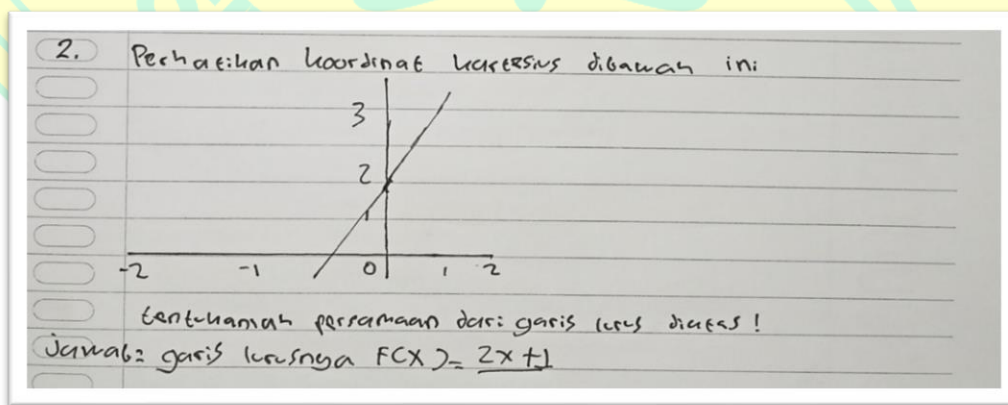 2. Perhatikan koordinat kartesius dibawah ini
3
2
1
-2 -1 0 1 2
tentukanlah persamaan dari garis lurus diatas!
Jawab: garis lurusnya F(x) = 2x+1